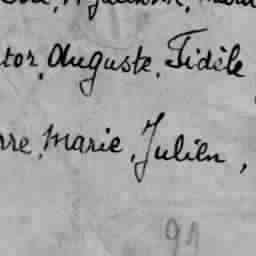 tor, Auguste, Fidèle
rre, Marie, Julien,
91